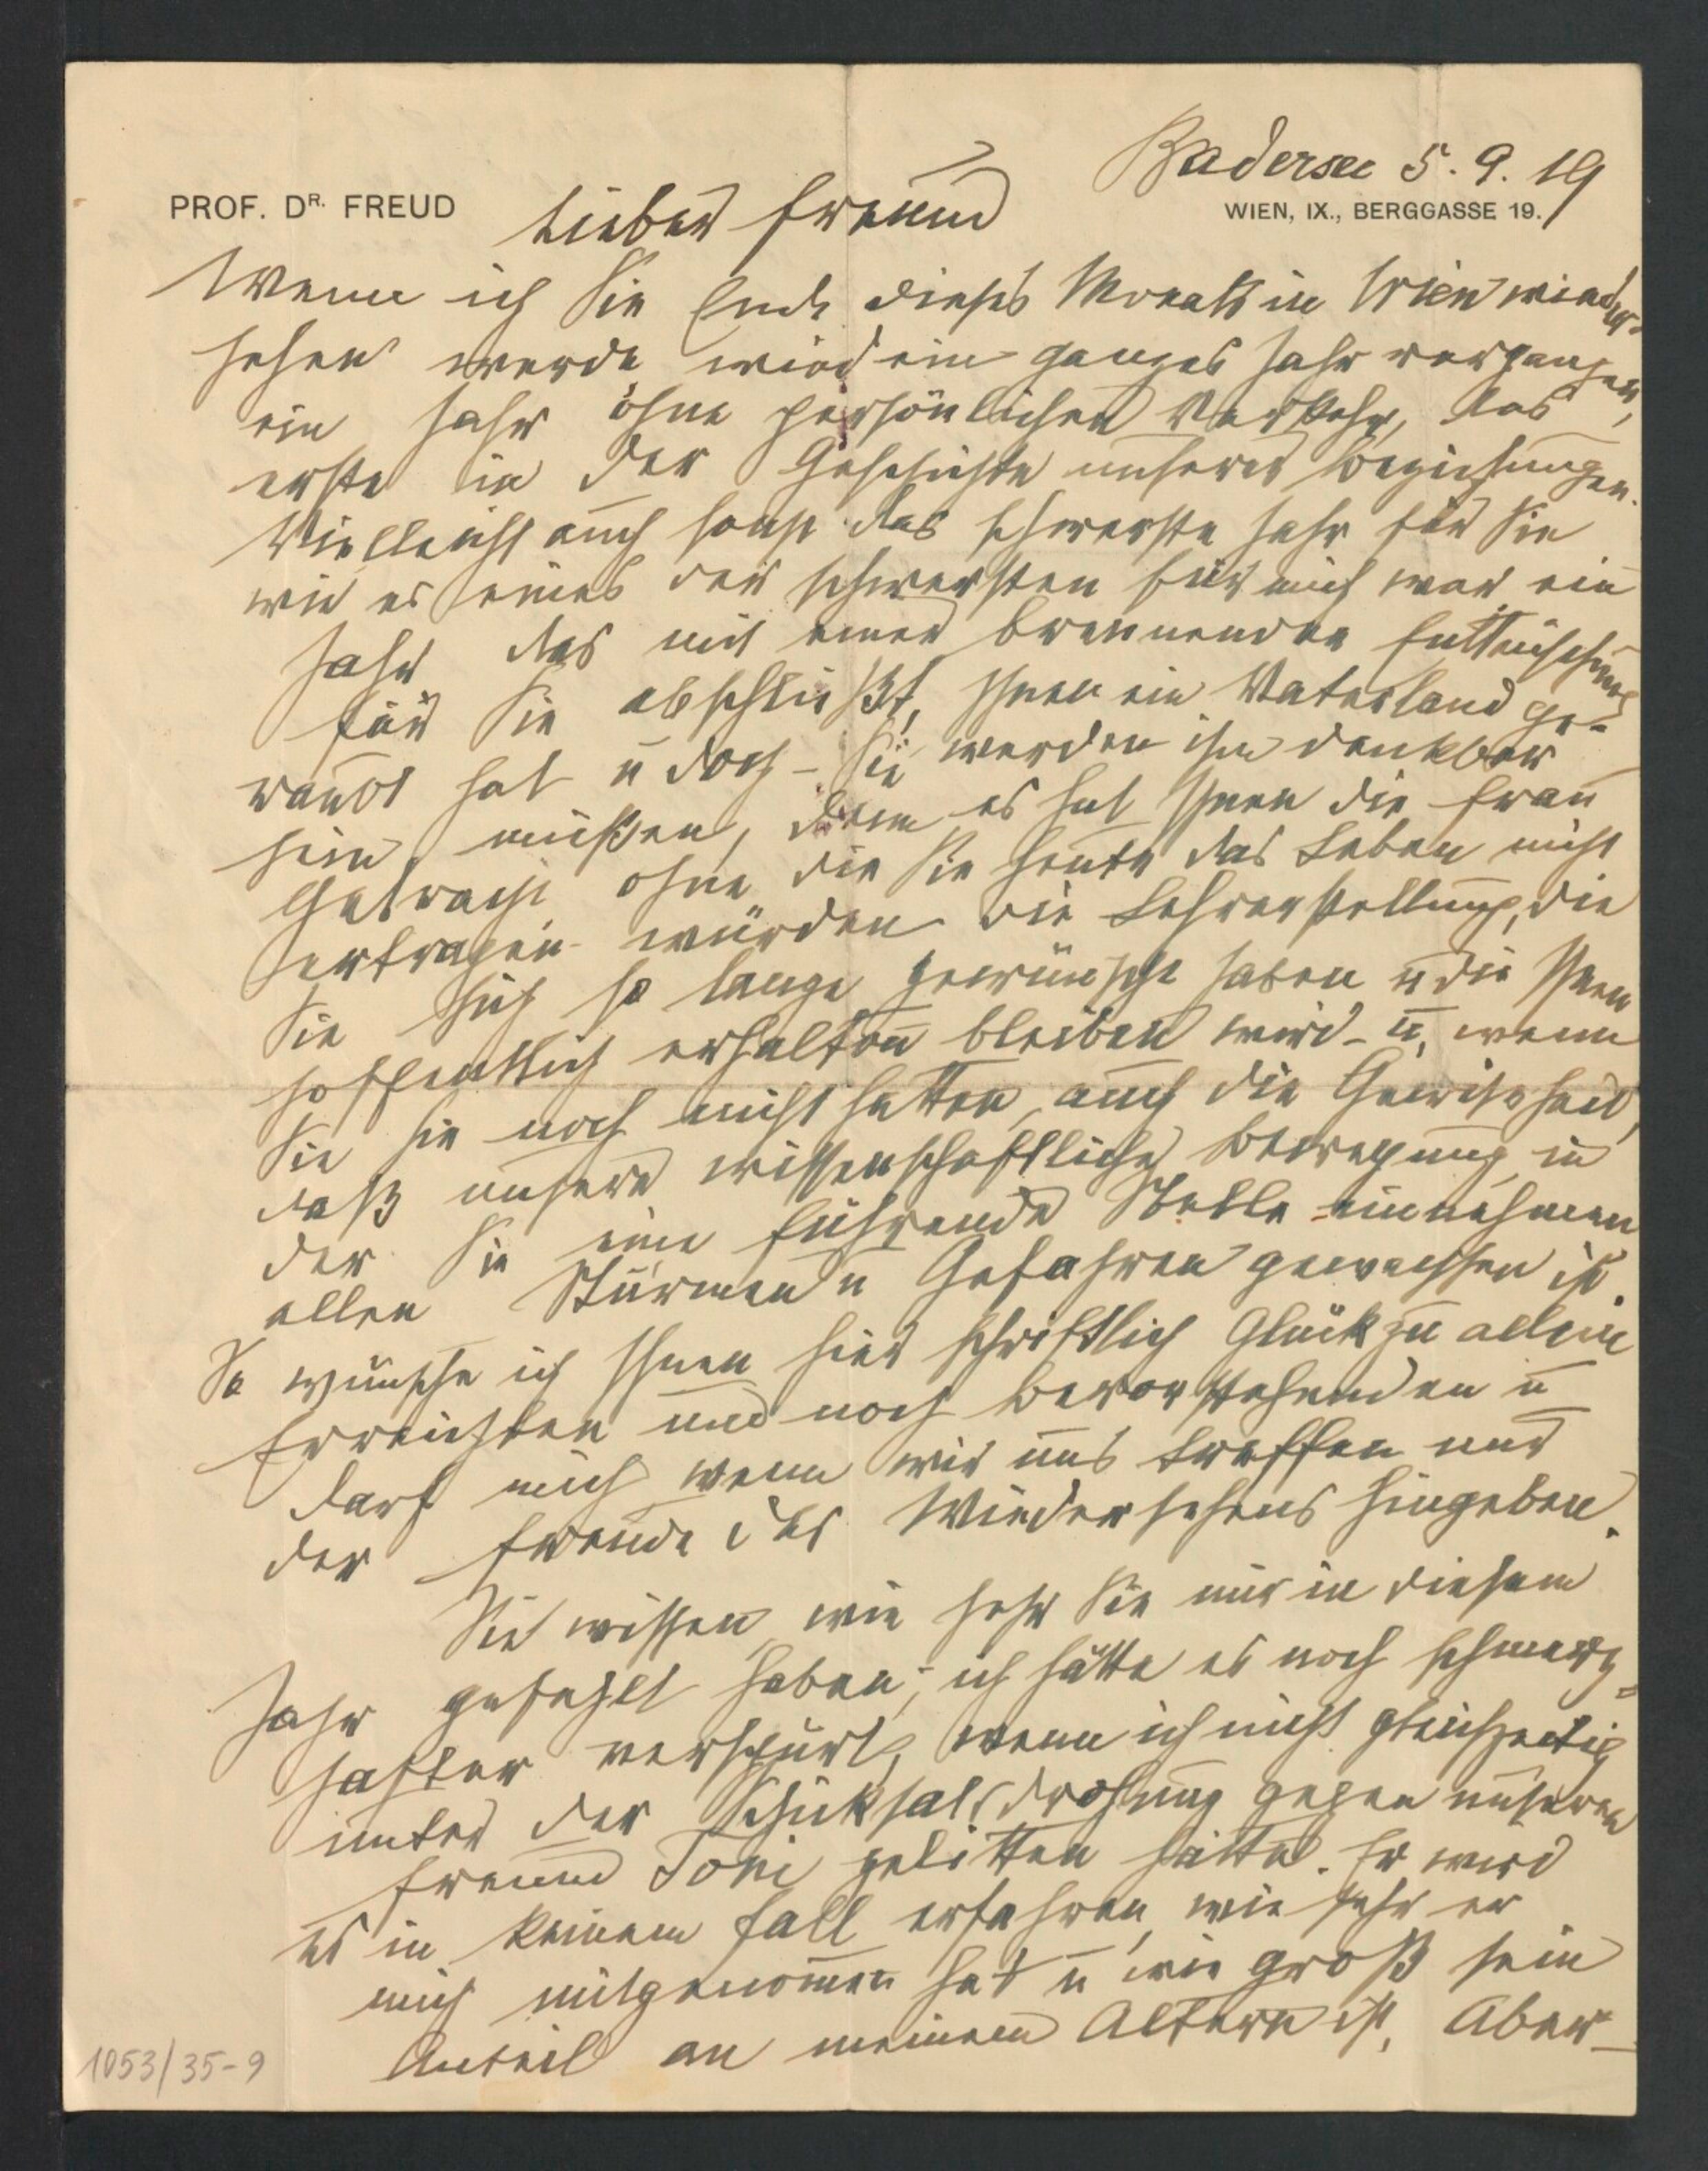 Badersee 5. 9. 19
PROF. DR. FREUD
WIEN, IX., BERGGASSE 19.
Lieber Freund
Wenn ich Sie Ende dieses Monats in Wien wieder-
sehen werde wird ein ganzes Jahr vergangen,
ein Jahr ohne persönlichen Verkehr, das
erste in der Geschichte unserer Beziehungen.
Vielleicht auch sonst das schwerste Jahr für Sie
wie es eines der schwersten für mich war ein
Jahr das mit einer brennenden Enttäuschung
für Sie abschließt, Ihnen ein Vaterland ge-
raubt hat u doch – Sie werden ihm dankbar
sein müßen, denn es hat Ihnen die Frau
gebracht ohne die Sie heute das Leben nicht
ertragen würden die Lehrerstellung, die
Sie sich so lange gewünscht haben u die Ihnen
hoffentlich erhalten bleiben wird – u, wenn
Sie sie noch nicht hatten, auch die Gewißheit,
daß unsere wissenschaftliche Bewegung in
der Sie eine führende Stelle einnehmen
allen Stürmen u Gefahren gewachsen ist.
So wünsche ich Ihnen hier schriftlich Glück zu allem
Erreichten und noch Bevorstehenden u
darf mich wenn wir uns treffen nur
der Freude des Wiedersehens hingeben.
Sie wissen, wie sehr Sie mir in diesem
Jahr gefehlt haben; ich hätte es noch schmerz-
hafter verspürt, wenn ich nicht gleichzeitig
unter der Schicksalsdrohung gegen unseren
Freund Toni gelitten hätte. Er wird
es in keinem Fall erfahren, wie sehr er
mich mitgenommen hat u wie groß sein
Anteil an meinem Altern ist. Aber
1053/35-9